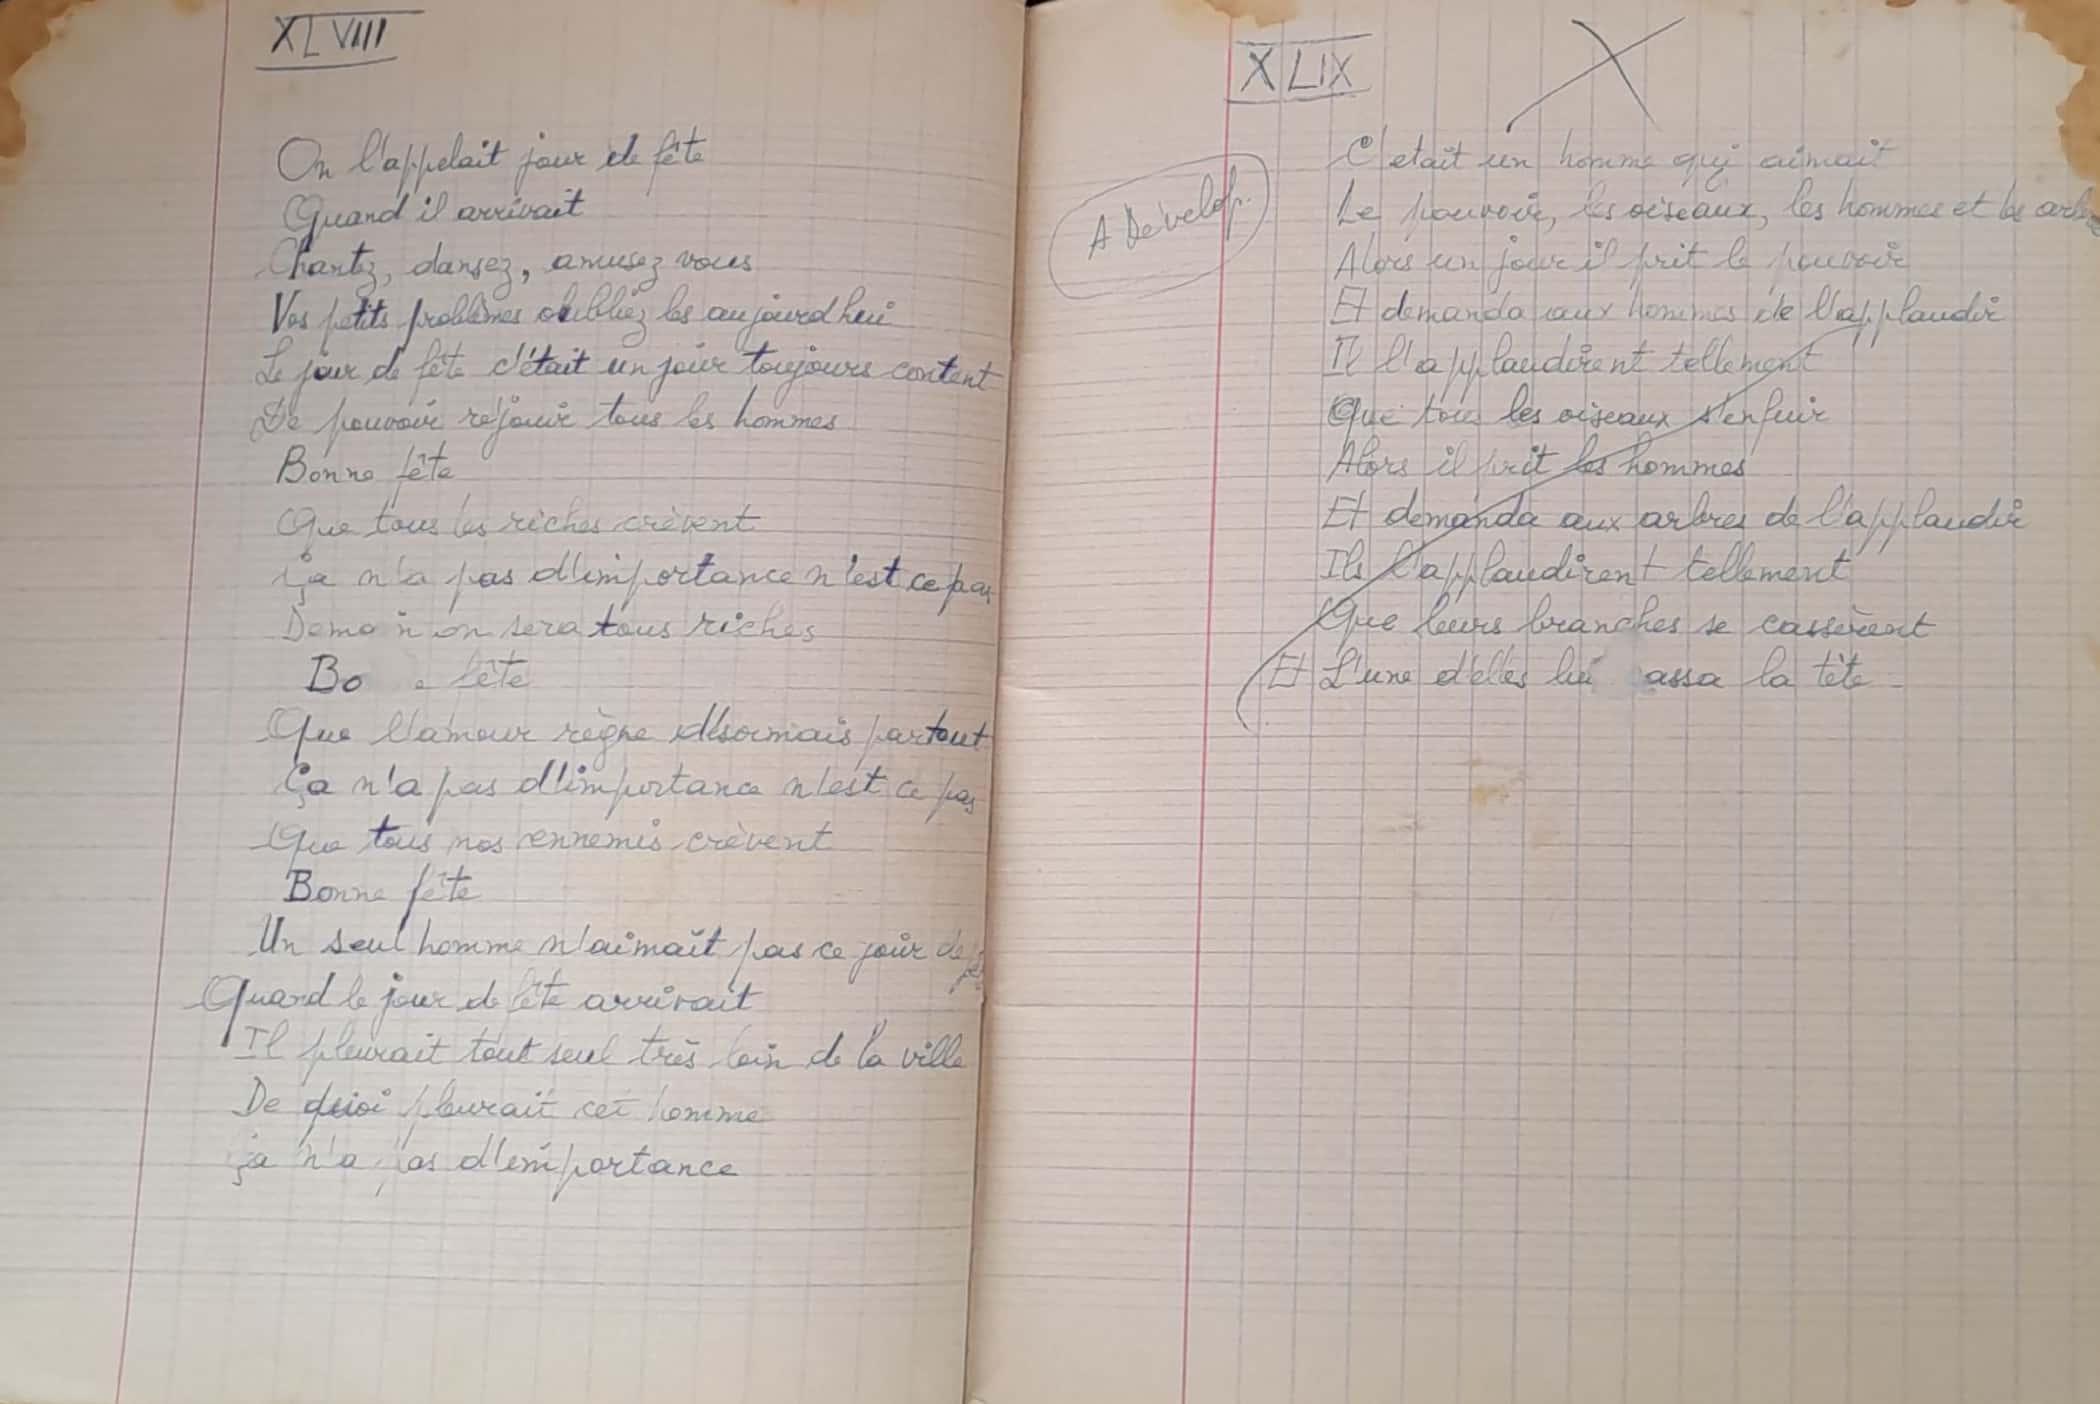 XLVIII
On l'appelait jour de fête
Quand il arrivait
Chantez, dansez, amusez vous
Vos petits problèmes oubliez les aujourd'hui
Le jour de fête c'était un jour toujours content
De pouvoir réjouir tous les hommes
Bonne fête
Que tous les riches crèvent
ça n'a pas d'importance n'est ce pas
Demain on sera tous riches
Bo e fête
Que l'amour règne désormais partout
Ça n'a pas d'importance n'est ce pas
Que tous nos ennemis crèvent
Bonne fête
Un seul homme n'aimait pas ce jour de
Quand le jour de fête arrivait
Il pleurait tout seul très loin de la ville
De quoi pleurait cet homme
ça n'a pas d'importance
XLIX
A Dévelop.
C'etait un homme qui aimait
Le pouvoir, les oiseaux, les hommes et les arbres
Alors un jour il prit le pouvoir
Et demanda aux hommes de l'applaudir
Il l'applaudirent tellement
Que tous les oiseaux s'enfuir
Alors il prit les hommes
Et demanda aux arbres de l'applaudir
Ils l'applaudirent tellement
Que leurs branches se cassèrent
Et L'une d'elles lui assa la tête